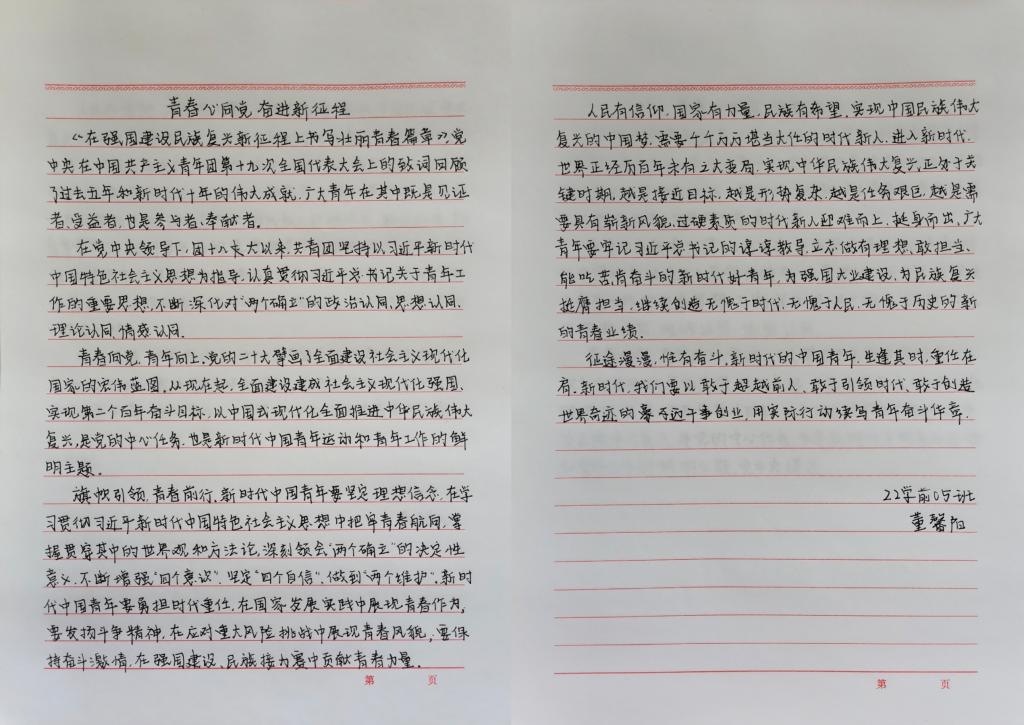 青春心向党 奋进新征程
《在强国建设民族复兴新征程上书写壮丽青春篇章》,党
中央在中国共产主义青年团第十九次全国代表大会上的致词回顾
了过去五年和新时代十年的伟大成就,广大青年在其中既是见证
者、受益者,也是参与者、奉献者。
在党中央领导下,团十八大以来,共青团坚持以习近平新时代
中国特色社会主义思想为指导,认真贯彻习近平总书记关于青年工
作的重要思想,不断深化对"两个确立"的政治认同、思想认同、
理论认同、情感认同。
青春向党,青年向上,党的二十大擘画了全面建设社会主义现代化
国家的宏伟蓝图。从现在起,全面建设建成社会主义现代化强国、
实现第二个百年奋斗目标,以中国式现代化全面推进中华民族伟大
复兴,是党的中心任务,也是新时代中国青年运动和青年工作的鲜
明主题。
旗帜引领,青春前行。新时代中国青年要坚定理想信念,在学
习贯彻习近平新时代中国特色社会主义思想中把牢青春航向,掌
握贯穿其中的世界观和方法论,深刻领会"两个确立"的决定性
意义,不断增强"四个意识"、坚定"四个自信"、做到"两个维护"。新时
代中国青年要勇担时代重任,在国家发展实践中展现青春作为,
要发扬斗争精神,在应对重大风险挑战中展现青春风貌,要保
持奋斗激情,在强国建设、民族接力赛中贡献青春力量。
第 页
人民有信仰,国家有力量,民族有希望。实现中国民族伟大
复兴的中国梦,需要千千万万堪当大任的时代新人。进入新时代,
世界正经历百年未有之大变局,实现中华民族伟大复兴正处于关
键时期,越是接近目标,越是形势复杂,越是任务艰巨,越是需
要具有崭新风貌、过硬素质的时代新人迎难而上、挺身而出,广大
青年要牢记习近平总书记的谆谆教导,立志做有理想、敢担当、
能吃苦、肯奋斗的新时代好青年,为强国大业建设、为民族复兴
挺膺担当,继续创造无愧于时代、无愧于人民、无愧于历史的新
的青春业绩。
征途漫漫,惟有奋斗。新时代的中国青年,生逢其时,重任在
肩。新时代,我们要以敢于超越前人、敢于引领时代、敢于创造
世界奇迹的豪迈干事创业,用实际行动续写青年奋斗华章。
22学前05班
董馨阳
第 页